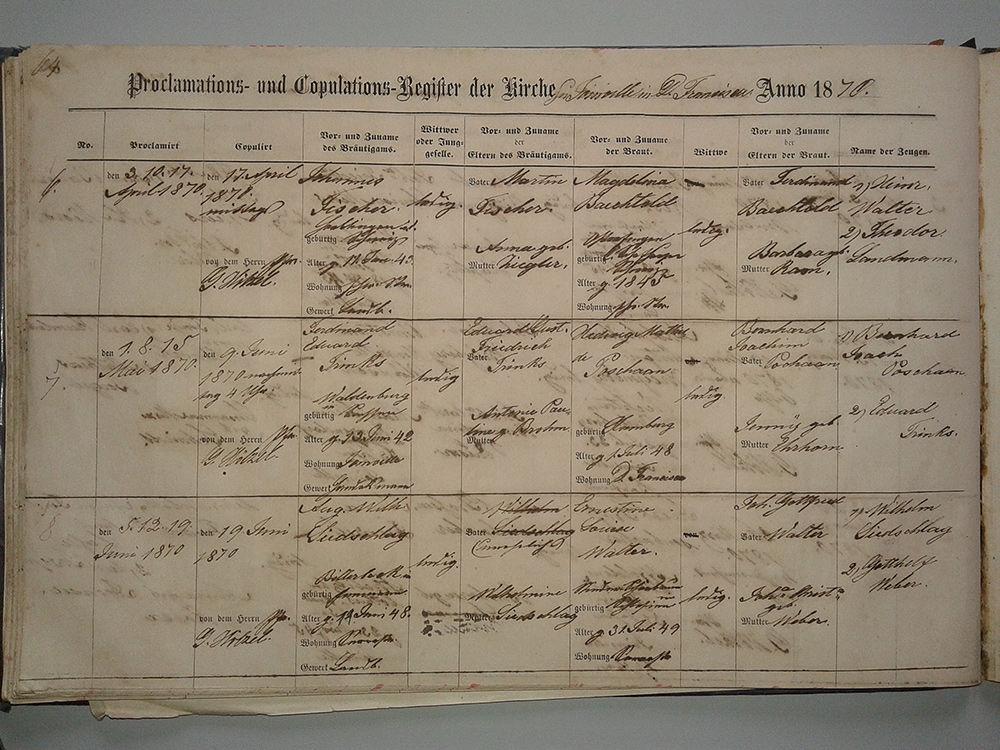 64.
Proclamations- und Copulations-Register der Kirche zu Joinville in D. Francisca Anno 1870.
No.
Proclamirt
Copulirt
Vor- und Zuname
des Bräutigams.
Wittwer
oder Jung-
geselle.
Vor- und Zuname
der
Eltern des Bräutigams.
Vor- und Zuname
der Braut.
Wittwe
Vor- und Zuname
der
Eltern der Braut.
Name der Zeugen.
6.
den 3. 10. 17.
April 1870.
den 17. April
1870.
mittags
von dem Herrn Pfr.
G. Hölzel.
Johannes
Fischer.
gebürtig Schweiz
Alter g. Jan. 43.
Wohnung
Gewerk Landb.
ledig.
Vater Martin
Fischer.
Anna geb.
Mutter Ziegler.
Magdalena
Baechtold
gebürtig
Schweiz
Alter g. 1845
Wohnung
ledig.
Vater Ferdinand
Baechtold
Barbara geb.
Mutter Ram.
1) Heinr.
Walter
2) Theodor
Landmann.
7.
den 1. 8. 15
Mai 1870.
den 9. Juni
1870 nachmit-
tag 4 Uhr
von dem Herrn Pfr.
G. Hölzel.
Ferdinand
Eduard
Trinks
Waldenburg
gebürtig Preussen
Alter g. 13 Juni 42
Wohnung Joinville
Gewerk
ledig
Eduard
Friedrich
Vater Trinks
Antonie Pau-
line g. Brehm
Mutter
Hedwig Mathil
de
Poschaan
Hamburg
gebürtig
Alter g. 1 Juli 48
Wohnung D. Francisca
ledig.
Bernhard
Joachim
Vater Pochaan
Jenny geb.
Mutter Ehrhorn
1) Bernhard
Joach
Poschaan
2) Eduard
Trinks.
8
den 5. 12. 19.
Juni 1870
den 19 Juni
1870
von dem Herrn Pfr.
G. Hölzel.
Aug. Wilh.
Liedschlag
Billerbeck
gebürtig Pommern
Alter g. 14 Juni 48.
Wohnung
Gewerk Landb.
ledig.
Wilhelm
Vater Liedschlag
Wilhelmine
Mutter Liedschlag
Ernestine
Louise
Walter.
gebürtig
Alter g. 31. Juli 49
Wohnung
ledig.
Joh. Gottfried
Vater Walter
geb.
Mutter Weber.
1) Wilhelm
Liedschlag
2) Gotthelf
Weber.